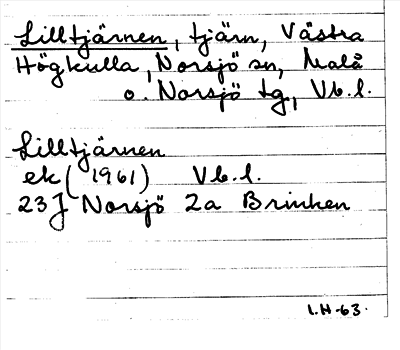 Lilltjärnen, tjärn, Västra
Högkulla, Norsjö sn, Malå
o. Norsjö tg, Vb.l.
Lilltjärnen
ek (1961) Vb.l.
23J Norsjö 2a Brinken
I.H-63.